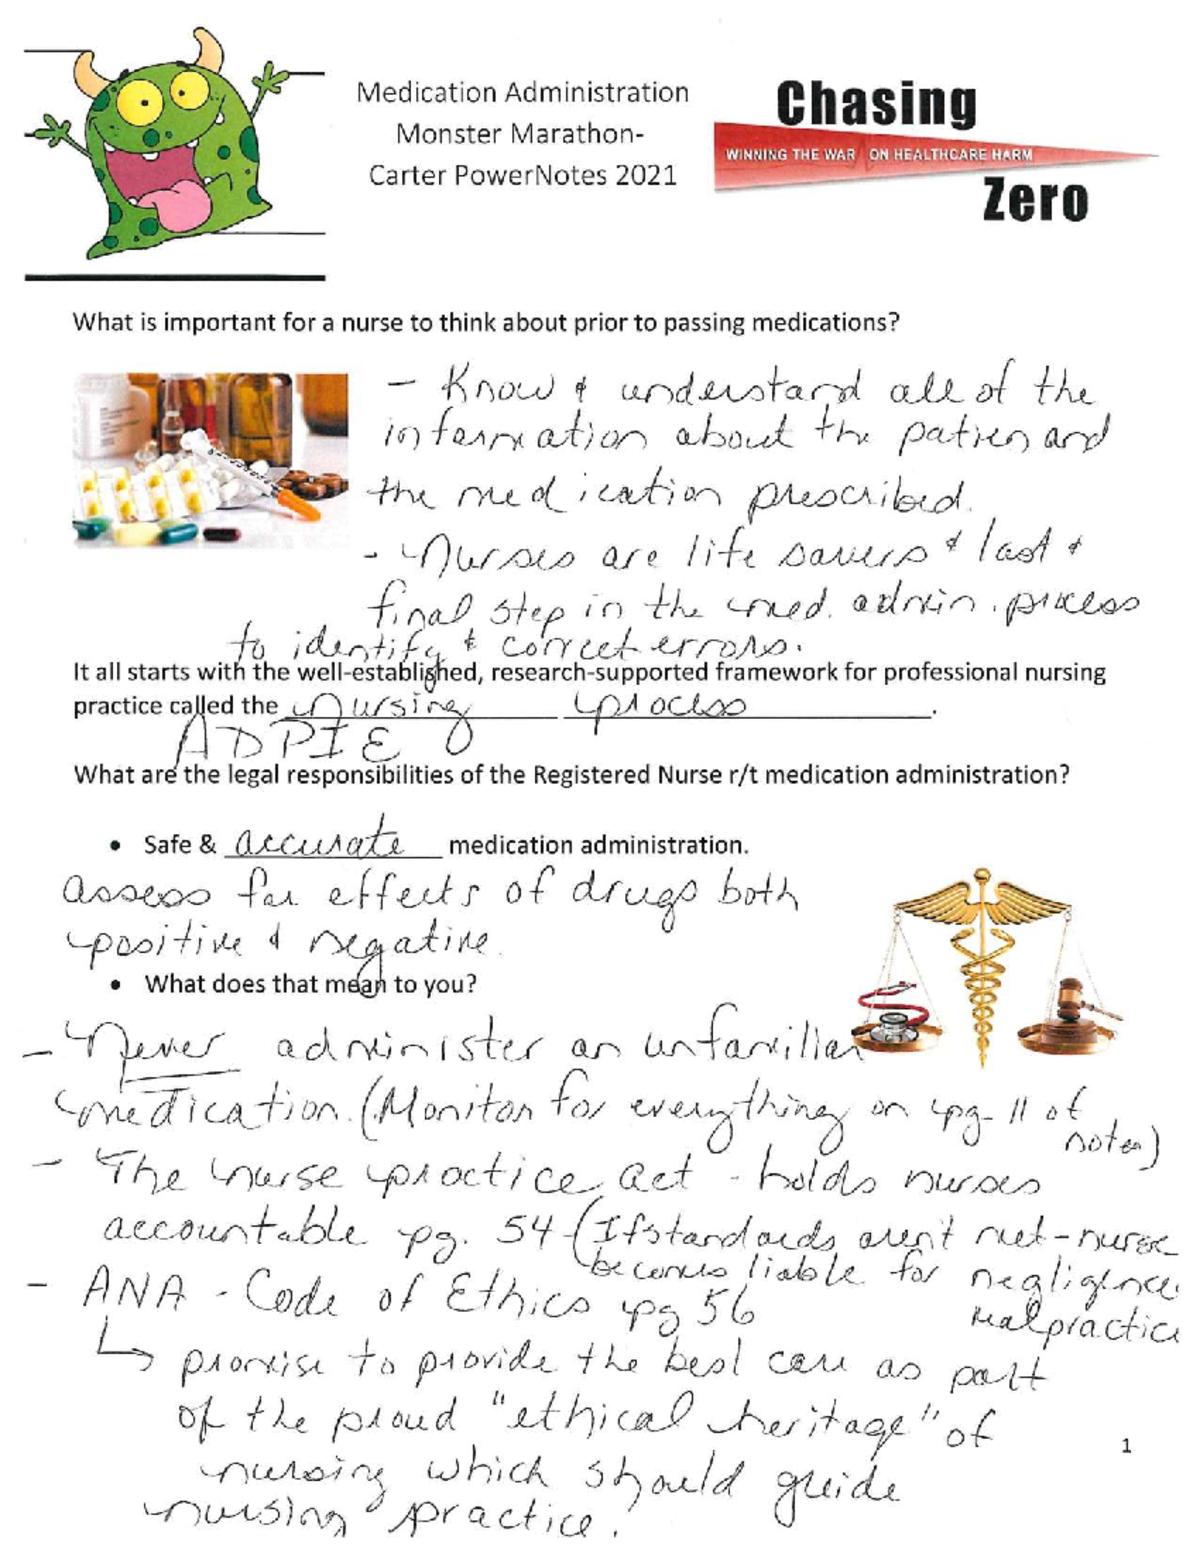 Medication Administration
Monster Marathon-
Carter PowerNotes 2021
Chasing
WINNING THE WAR ON HEALTHCARE HARM
Zero
What is important for a nurse to think about prior to passing medications?
- Know & understand all of the
information about the patien and
the medication prescribed.
- Nurses are life savers & last &
final step in the med. admin. process
to identify & correct errors.
It all starts with the well-established, research-supported framework for professional nursing
practice called the nursing process.
ADPIE
What are the legal responsibilities of the Registered Nurse r/t medication administration?
• Safe & accurate medication administration.
assess for effects of drugs both
positive & negative.
• What does that mean to you?
- Never administer an unfamiliar
medication. (Monitor for everything on pg. 11 of
notes)
- The nurse practice act - holds nurses
accountable pg. 54 (If standards aren't met - nurse
becomes liable for negligence
malpractice
- ANA - Code of Ethics pg 56
↳ promise to provide the best care as part
of the proud "ethical heritage" of
nursing which should guide
nursing practice.
1